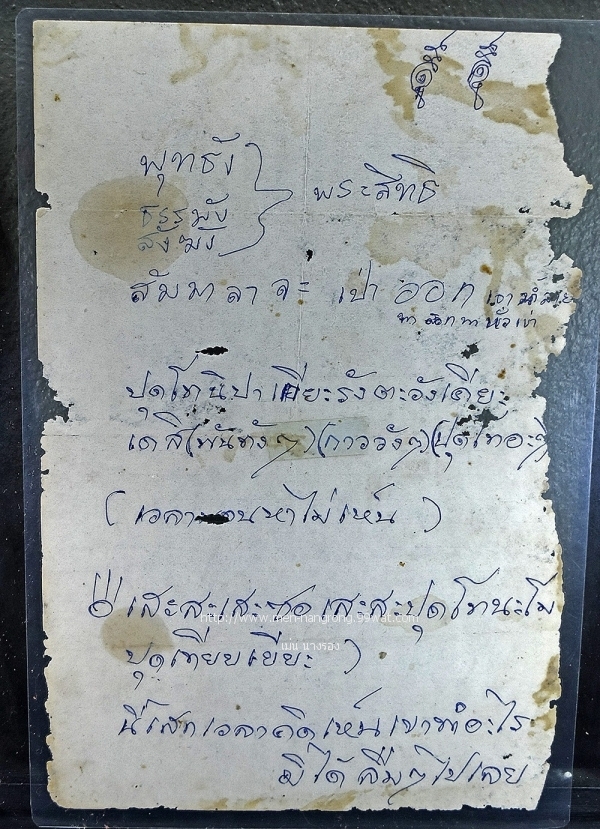 พุทธัง
ธรรมัง
สังฆัง
พระสิทธิ
สัมมาลาจะ เป่า ออก เอาน้ำ
ปุดโทนิปาเยียะรังตะวังเคียะ
เดสิ(พันทังๆ)(กาววังๆ)(ปุดเทอะๆ
(เวลา คนหาไม่เห็น )
เสะสะเสะซอเสะสะปุดโทนะโม
http://www.men-nangrong.99wat.com
ปุดเทียยเยียะ )
เม่น นางรอง
นี่เสกเวลาคิดเห็นเขาทำอะไร
มิได้ ลืมๆไปเลย